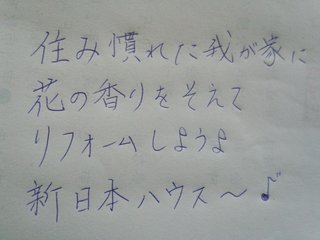 住み慣れた我が家に
花の香りをそえて
リフォームしようよ
新日本ハウス～♪